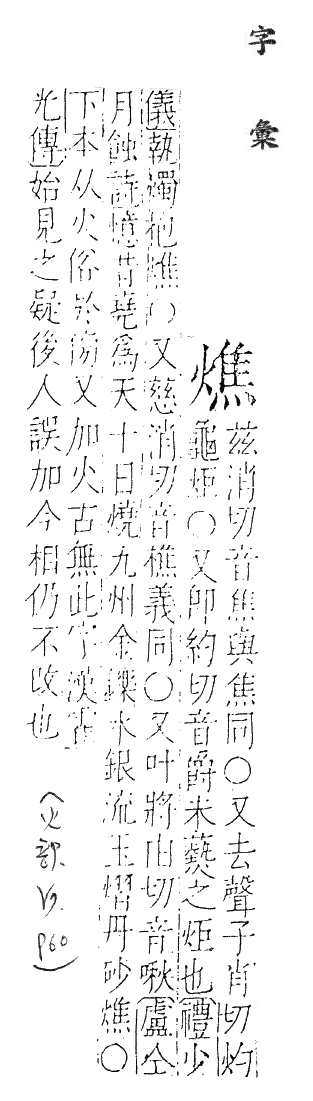 字彙
燋
茲消切音焦與焦同○又去聲子肖切灼
龜炬○又卽約切音爵未爇之炬也禮少
儀執燭抱燋○又慈消切音樵義同○又叶將由切音啾盧仝
月蝕詩憶昔堯為天十日燒九州金鑠水銀流玉熠丹砂燋○
下本从火俗於傍又加火古無此字漢
光傳始見之疑後人誤加今相仍不改也
(火部 19. P60)